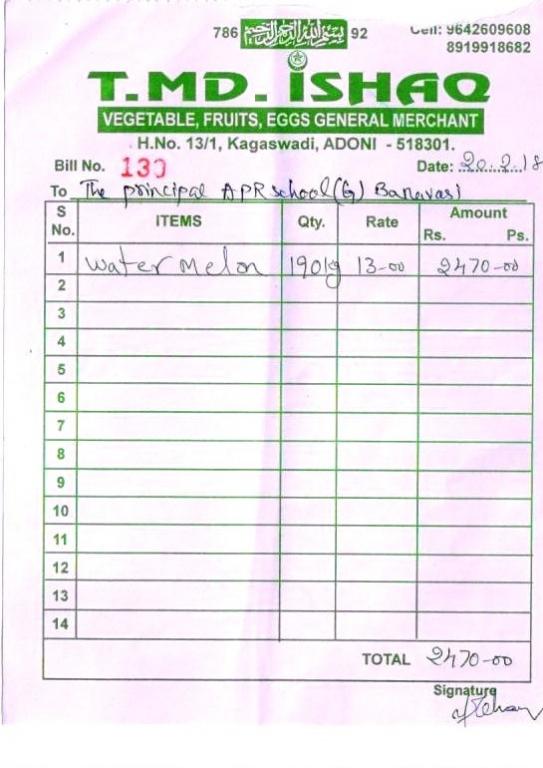 786 بسم الله الرحمن الرحيم 92
Cell: 9642609608
8919918682
T.MD. ISHAQ
VEGETABLE, FRUITS, EGGS GENERAL MERCHANT
H.No. 13/1, Kagaswadi, ADONI - 518301.
Bill No. 130 Date: 20.2.18
To The principal APR school (G) Banavasi
S No. ITEMS Qty. Rate Amount Rs. Ps.
1 water melon 190kg 13-00 2470-00
2
3
4
5
6
7
8
9
10
11
12
13
14
TOTAL 2470-00
Signature